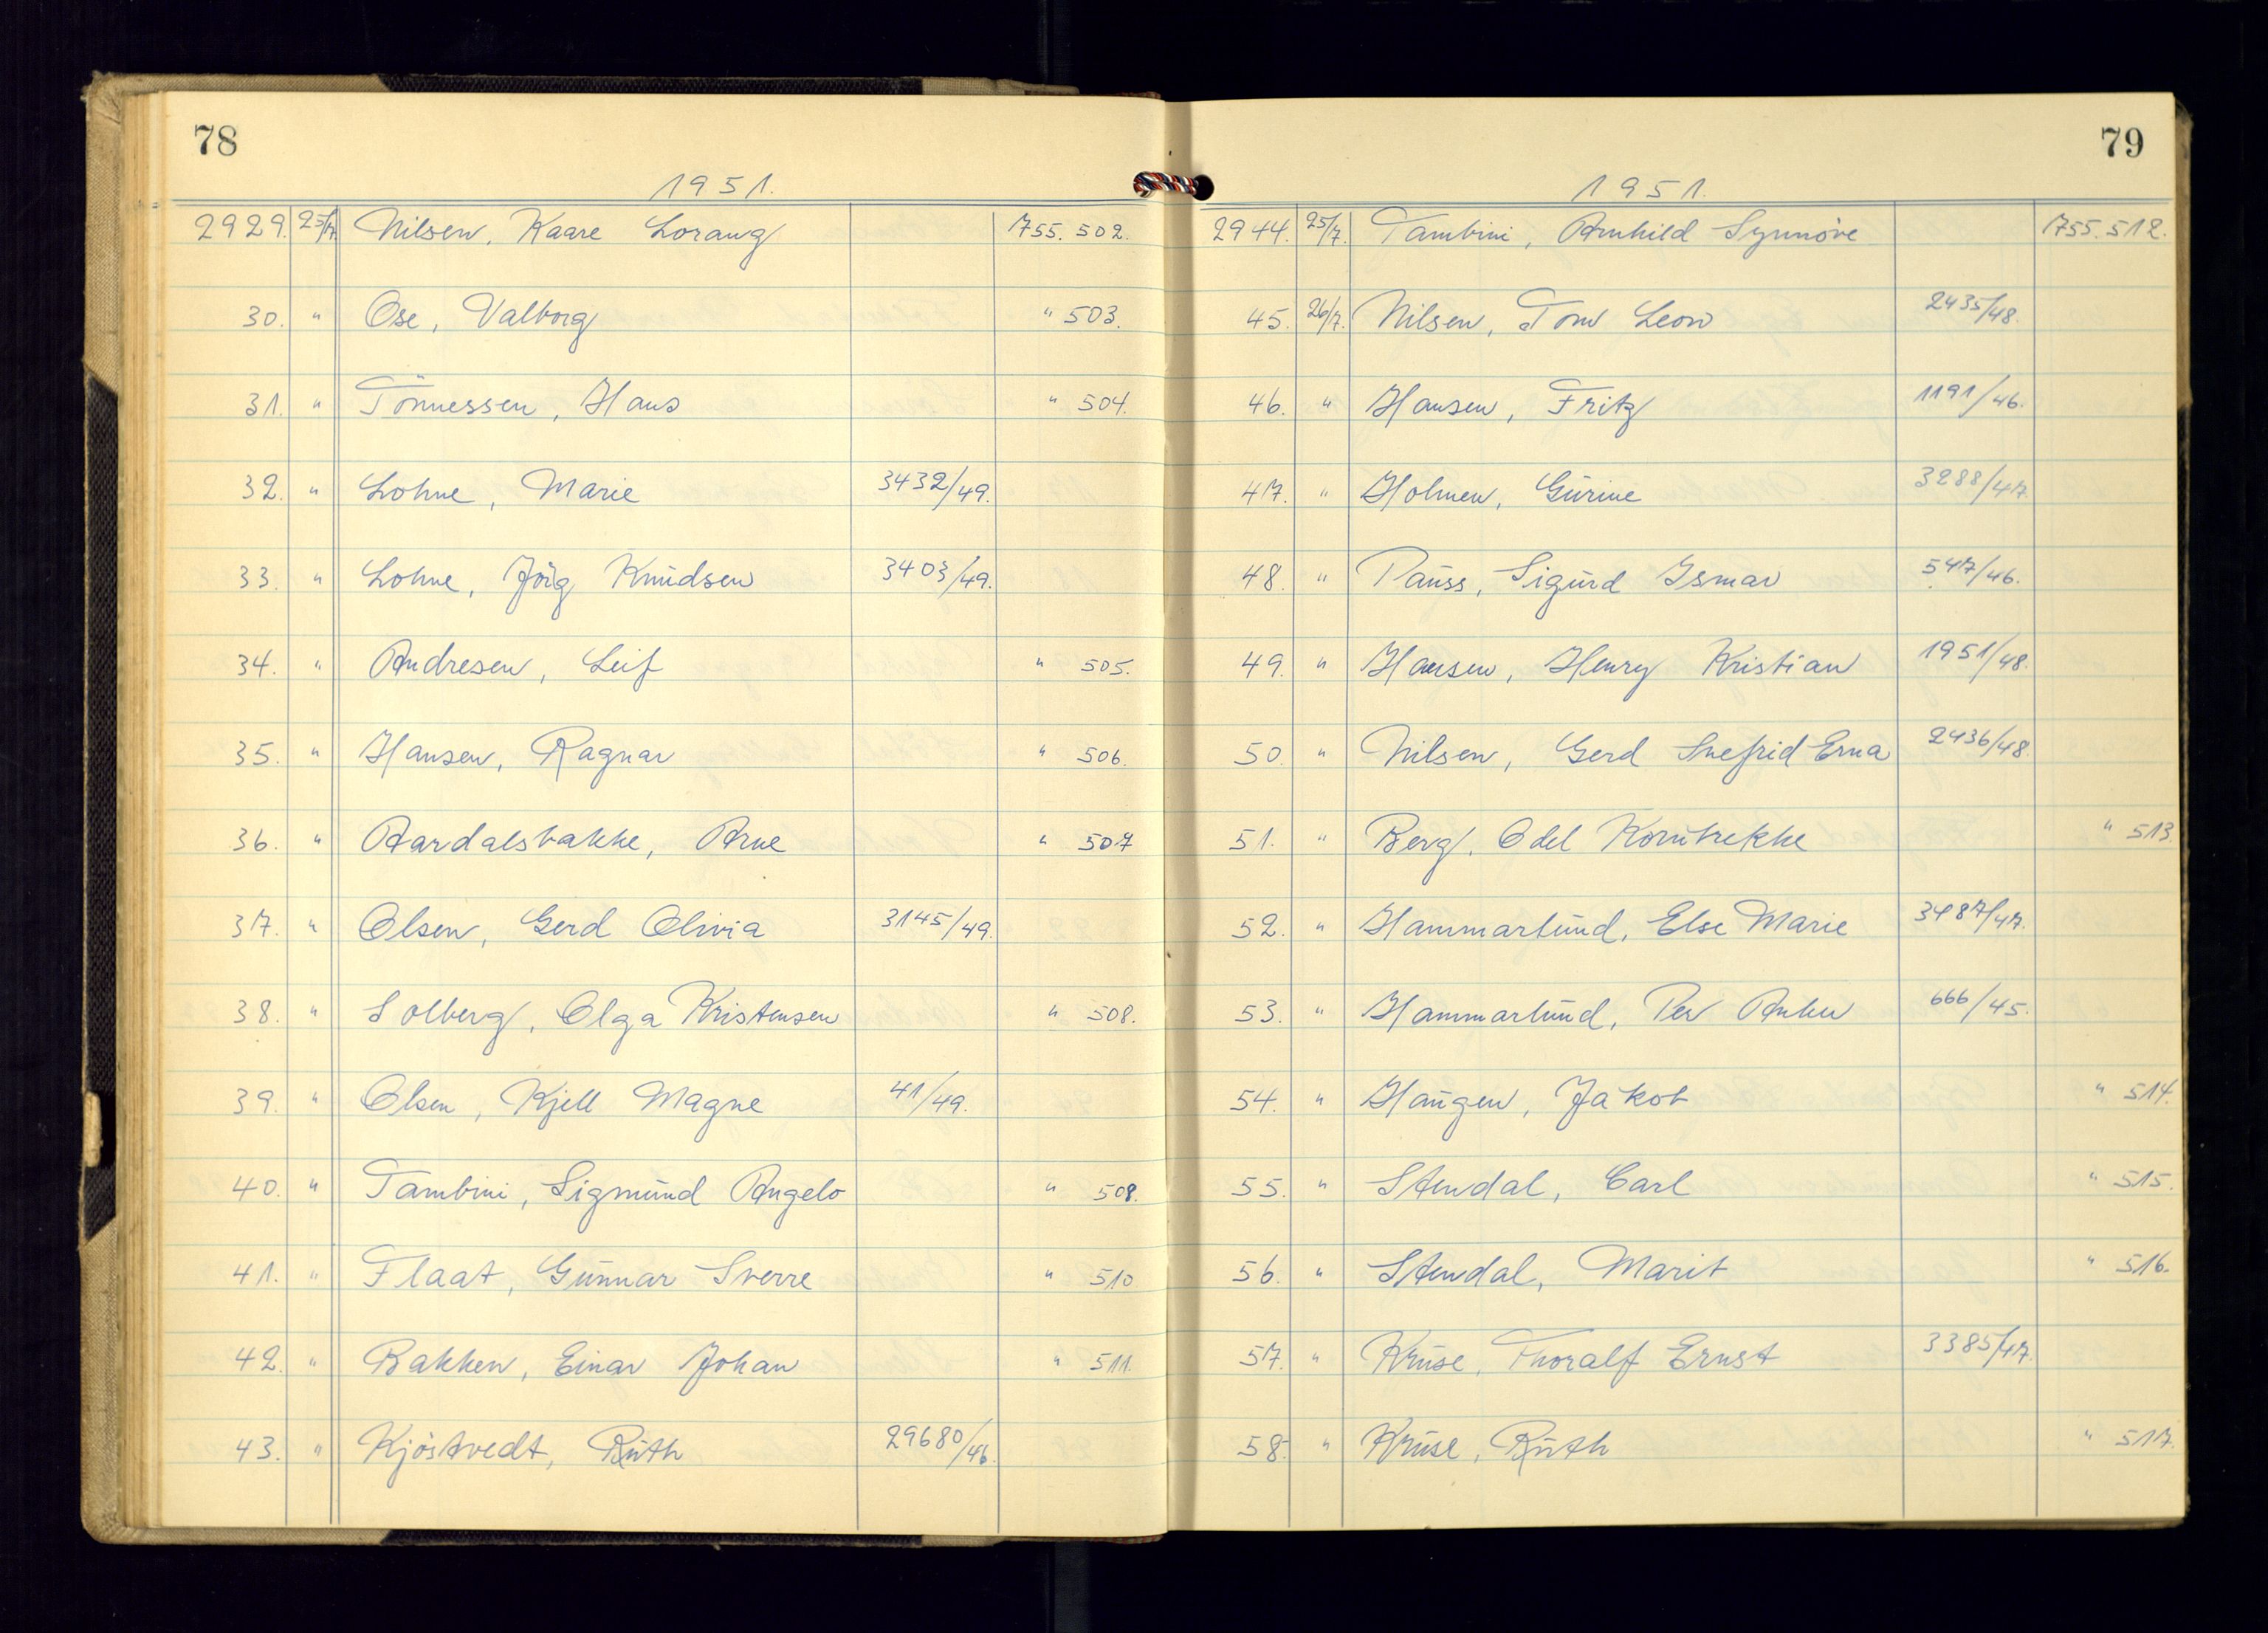 78
1951.
2929. 25/7. Nilsen, Kaare Lorang 755.502.
30. " Ose, Valborg " 503.
31. " Tönnessen, Hans " 504.
32. " Lohne, Marie 3432/49.
33. " Lohne, Jörg Knudsen 3403/49.
34. " Andresen, Leif " 505.
35. " Hansen, Ragnar " 506.
36. " Aardalsbakke, Arne " 507
37. " Olsen, Gerd Olivia 3145/49.
38. " Solberg, Olga Kristensen " 508.
39. " Olsen, Kjell Magne 41/49.
40. " Tambini, Sigmund Angelo " 509.
41. " Flaat, Gunnar Sverre " 510
42. " Bakken, Einar Johan " 511.
43. " Kjöstvedt, Ruth 29680/46.
79
1951.
2944. 25/7. Tambini, Arnhild Synnöve 755.512.
45. 26/7. Nilsen, Tom Leon 2435/48.
46. " Hansen, Fritz 1191/46.
47. " Holmen, Gurine 3288/47.
48. " Pauss, Sigurd Ismar 547/46.
49. " Hansen, Henry Kristian 1951/48.
50. " Nilsen, Gerd Snefrid Erna 2436/48.
51. " Berg, Odel " 513.
52. " Hammarlund, Else Marie 3487/47.
53. " Hammarlund, Per 666/45.
54. " Haugen, Jakob " 514.
55. " Stendal, Carl " 515.
56. " Stendal, Marit " 516.
57. " Kruse, Thoralf Ernst 3385/47.
58. " Kruse, Ruth " 517.